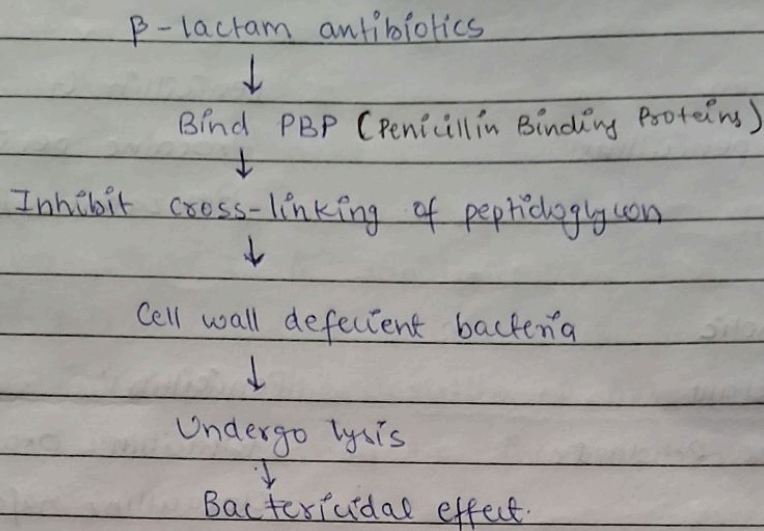 β-lactam antibiotics
↓
Bind PBP (Penicillin Binding Proteins)
↓
Inhibit cross-linking of peptidoglycan
↓
Cell wall defecient bacteria
↓
Undergo lysis
↓
Bactericidal effect.